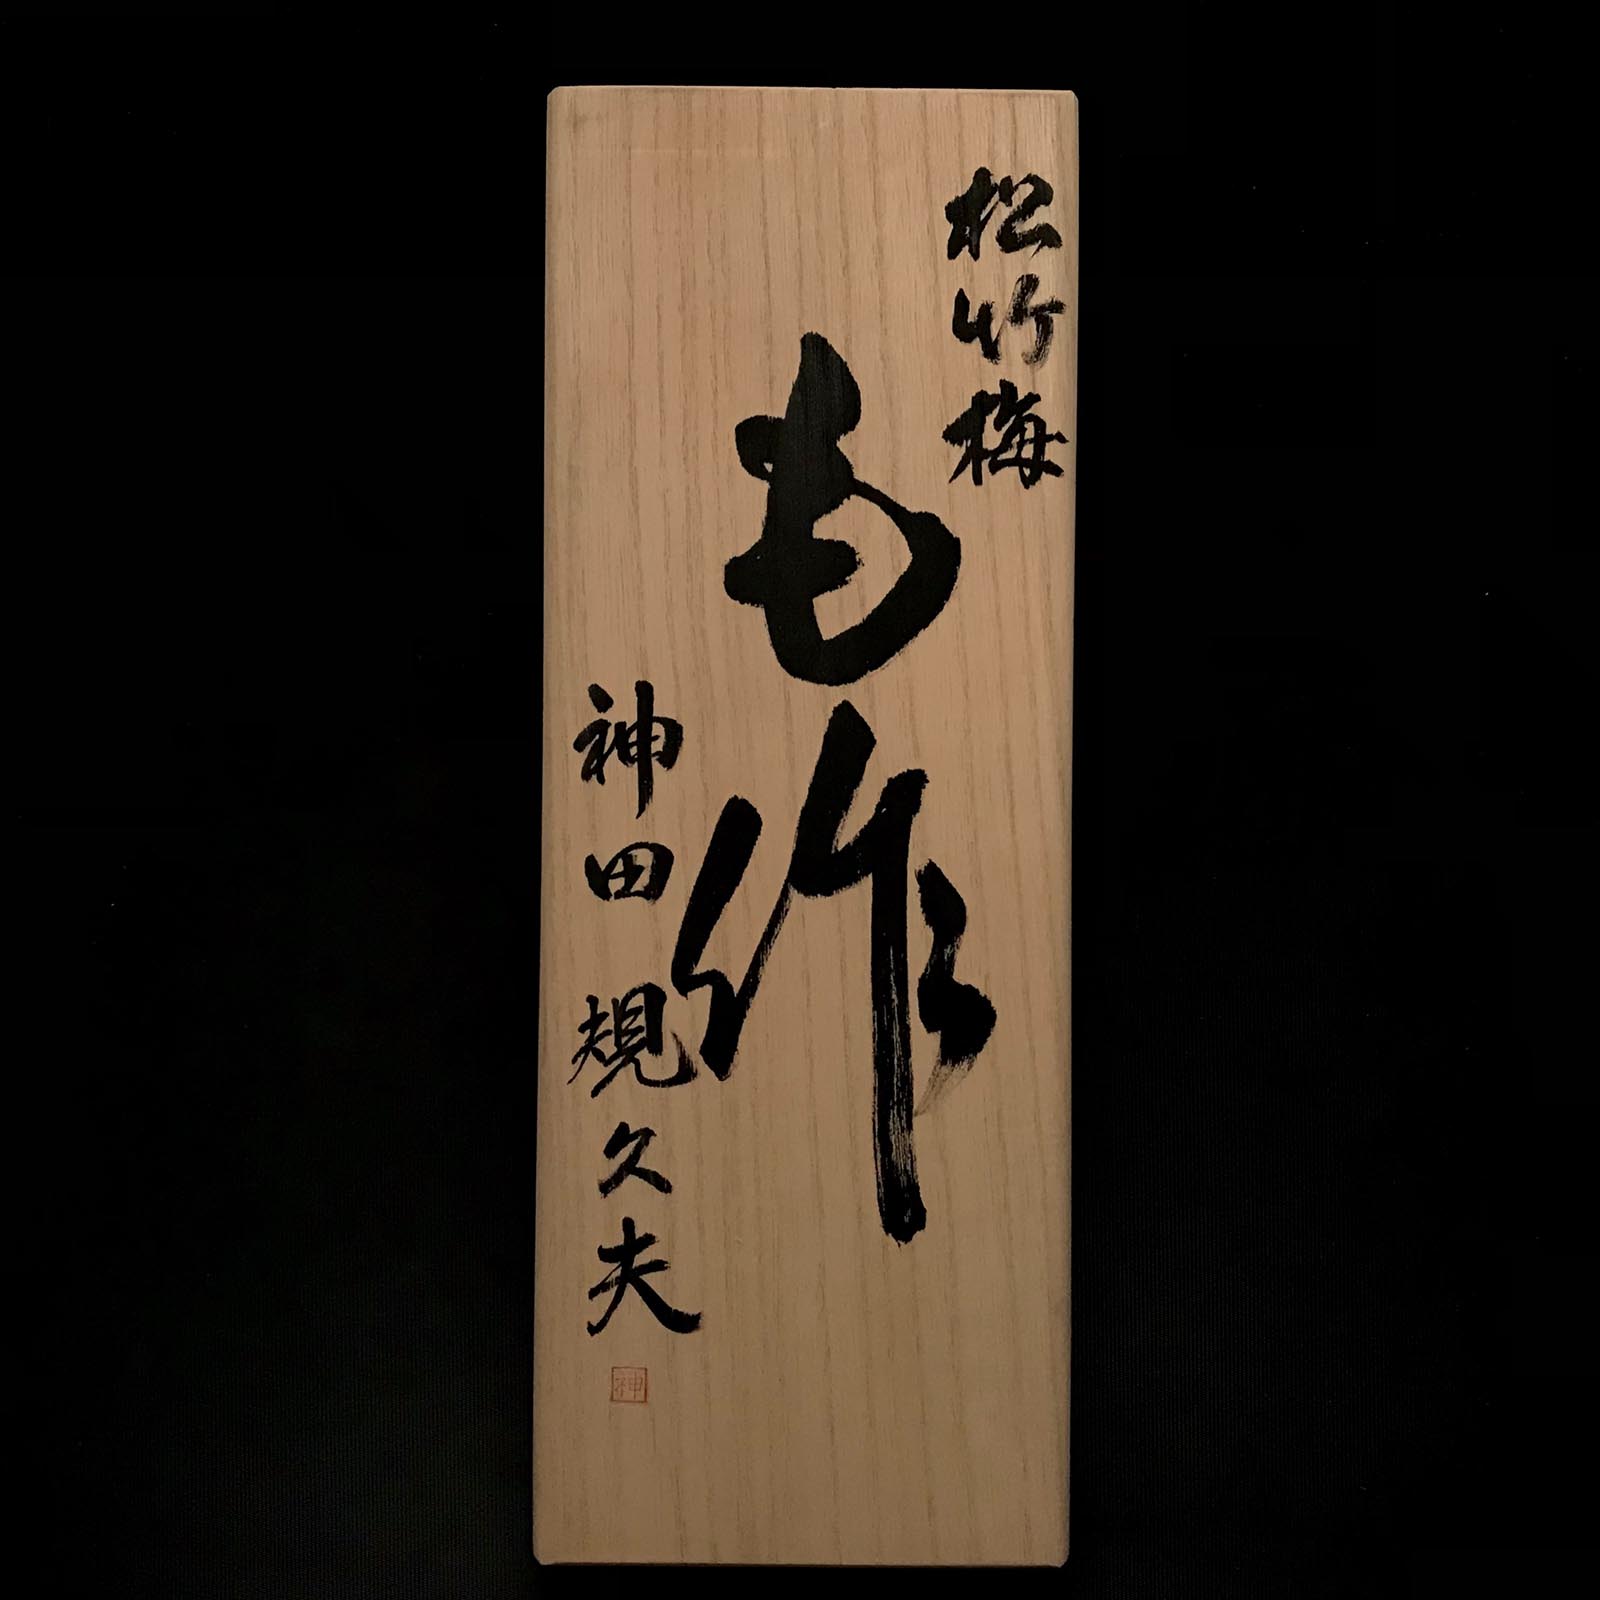 松竹梅
も作
神田規久夫
神